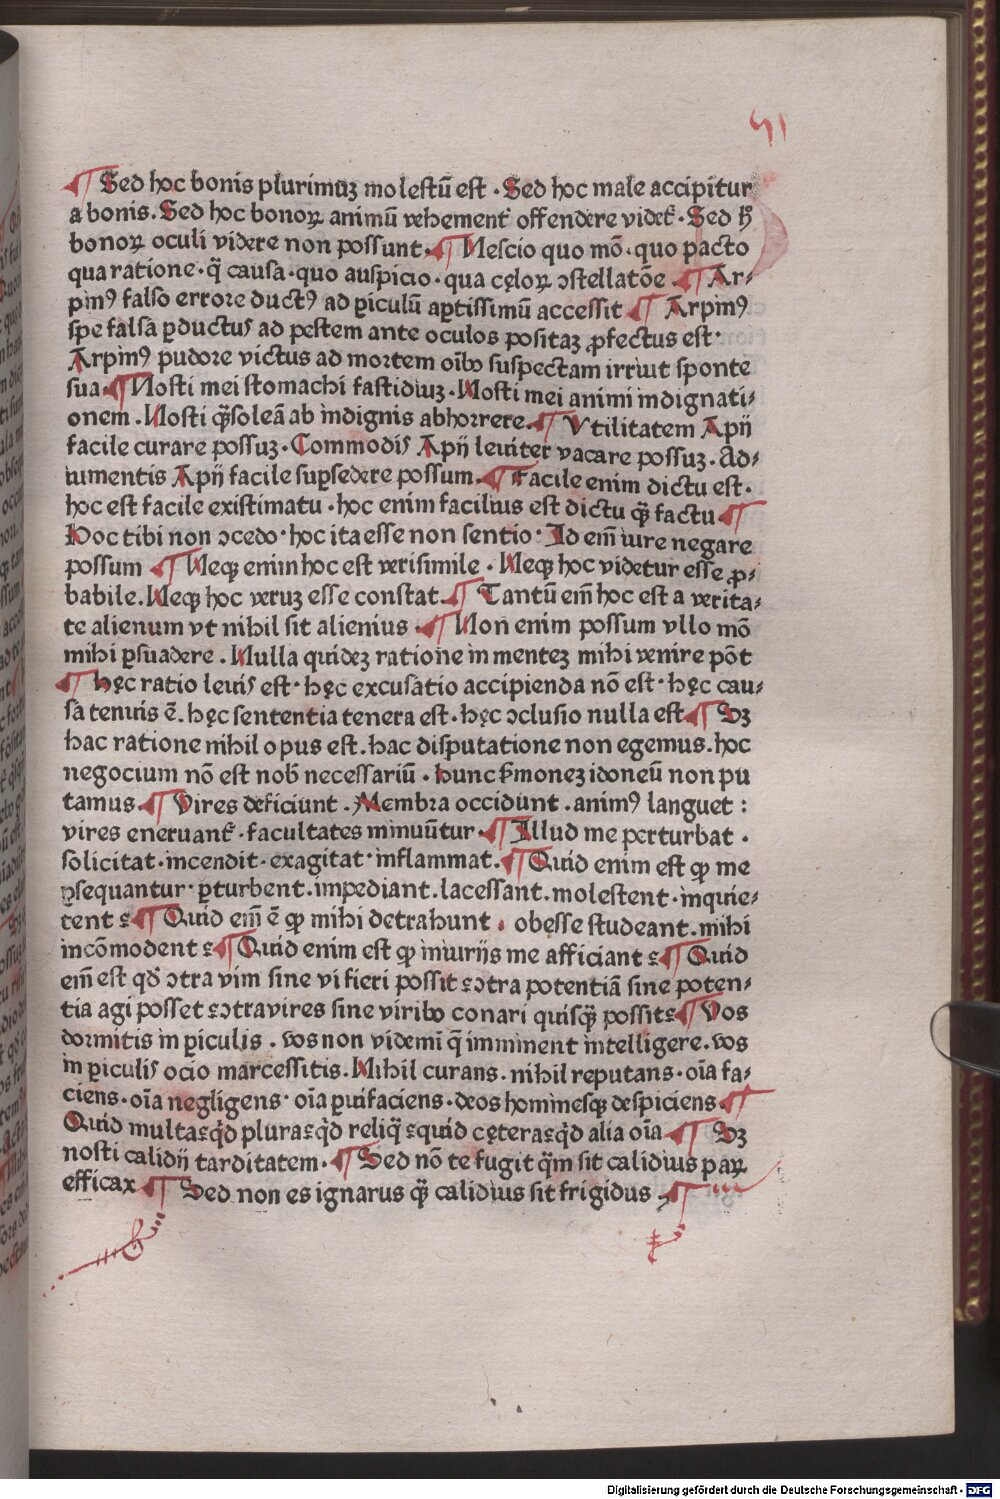 51
¶ Sed hoc bonis plurimuꝫ molestū est · Sed hoc male accipitur
a bonis. Sed hoc bonoꝝ animū vehement̃ offendere videt̃ · Sed h̊
bonoꝝ oculi videre non possunt · ¶ Nescio quo mō · quo pacto
qua ratione · q̃ causa · quo auspicio · qua cęloꝝ ↄstellatōe . ¶ Ar⸗
pinꝰ falso errore ductꝰ ad ꝑiculū aꝑtissimū accessit ¶ Arpinꝰ
spe falsa ꝑductus ad pestem ante oculos positaꝫ ꝓfectus est ·
Arpinꝰ pudore victus ad mortem oībꝰ suspectam irruit sponte
sua · ¶ Nosti mei stomachi fastidiuꝫ · Nosti mei animi indignati⸗
onem . Nosti q̃ soleā ab indignis abhorrere . ¶ Vtilitatem Apij
facile curare possuꝫ · Commodis Apij leuiter vacare possuꝫ . Ad⸗
iumentis Apij facile suꝑsedere possum . ¶ Facile enim dictu est ·
hoc est facile existimatu · hoc enim facilius est dictu q̃ factu ¶
Hoc tibi non ↄcedo · hoc ita esse non sentio · Id em̄ iure negare
possum ¶ Neqꝫ enim hoc est verisimile . Neqꝫ hoc videtur esse ꝓ⸗
babile . Neqꝫ hoc veruꝫ esse constat . ¶ Tantū em̄ hoc est a verita⸗
te alienum vt nihil sit alienius · ¶ Non enim possum vllo mō
mihi ꝑsuadere . Nulla quideꝫ ratione in menteꝫ mihi venire pōt
¶ hęc ratio leuis est · hęc excusatio accipienda nō est · hęc cau⸗
sa tenuis ē . hęc sententia tenera est · hęc ↄclusio nulla est ¶ Sꝫ
hac ratione nihil opus est . hac disputatione non egemus . hoc
negocium nō est nob̃ necessariū · hunc s̃moneꝫ idoneū non pu
tamus . ¶ Vires deficiunt . Membra occidunt . animꝰ languet :
vires eneruant̃ · facultates minuūtur . ¶ Illud me perturbat ·
solicitat · incendit · exagitat · inflammat . ¶ Quid enim est ꝙ me
ꝑsequantur · ꝑturbent . impediant . lacessant . molestent · inquie⸗
tent ? ¶ Quid em̄ ē ꝙ mihi detrahunt . obesse studeant . mihi
incōmodent ? ¶ Quid enim est ꝙ iniurijs me afficiant ? ¶ Quid
em̄ est qd̃ ↄtra vim sine vi fieri possit ? ↄtra potentiā sine poten⸗
tia agi posset ? ↄtra vires sine viribꝰ conari quisq̃ possit ? ¶ Vos
dormitis in ꝑiculis . vos non videmī q̄ imminent intelligere . vos
in ꝑiculis ocio marcessitis . Nihil curans . nihil reputans · oīa fa⸗
ciens · oīa negligens · oīa ꝑuifaciens · deos hominesqꝫ despiciens . ¶
Quid multa ? qd̃ plura ? qd̃ reliq̃ ? quid cętera ? qd̃ alia oīa ¶ Sꝫ
nosti calidij tarditatem · ¶ Sed nō te fugit q̃m sit calidius paꝝ
efficax ¶ Sed non es ignarus q̃ calidius sit frigidus , ¶
Digitalisierung gefördert durch die Deutsche Forschungsgemeinschaft - DFG